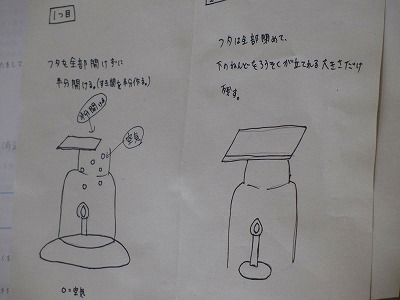 1つ目
フタを全部開けずに
半分開ける。(すき間を半分作る。)
半分開ける
空気
O=空気
フタは全部閉めて、
下のねんどをろうそくが立てれる大きさだけ
残す。